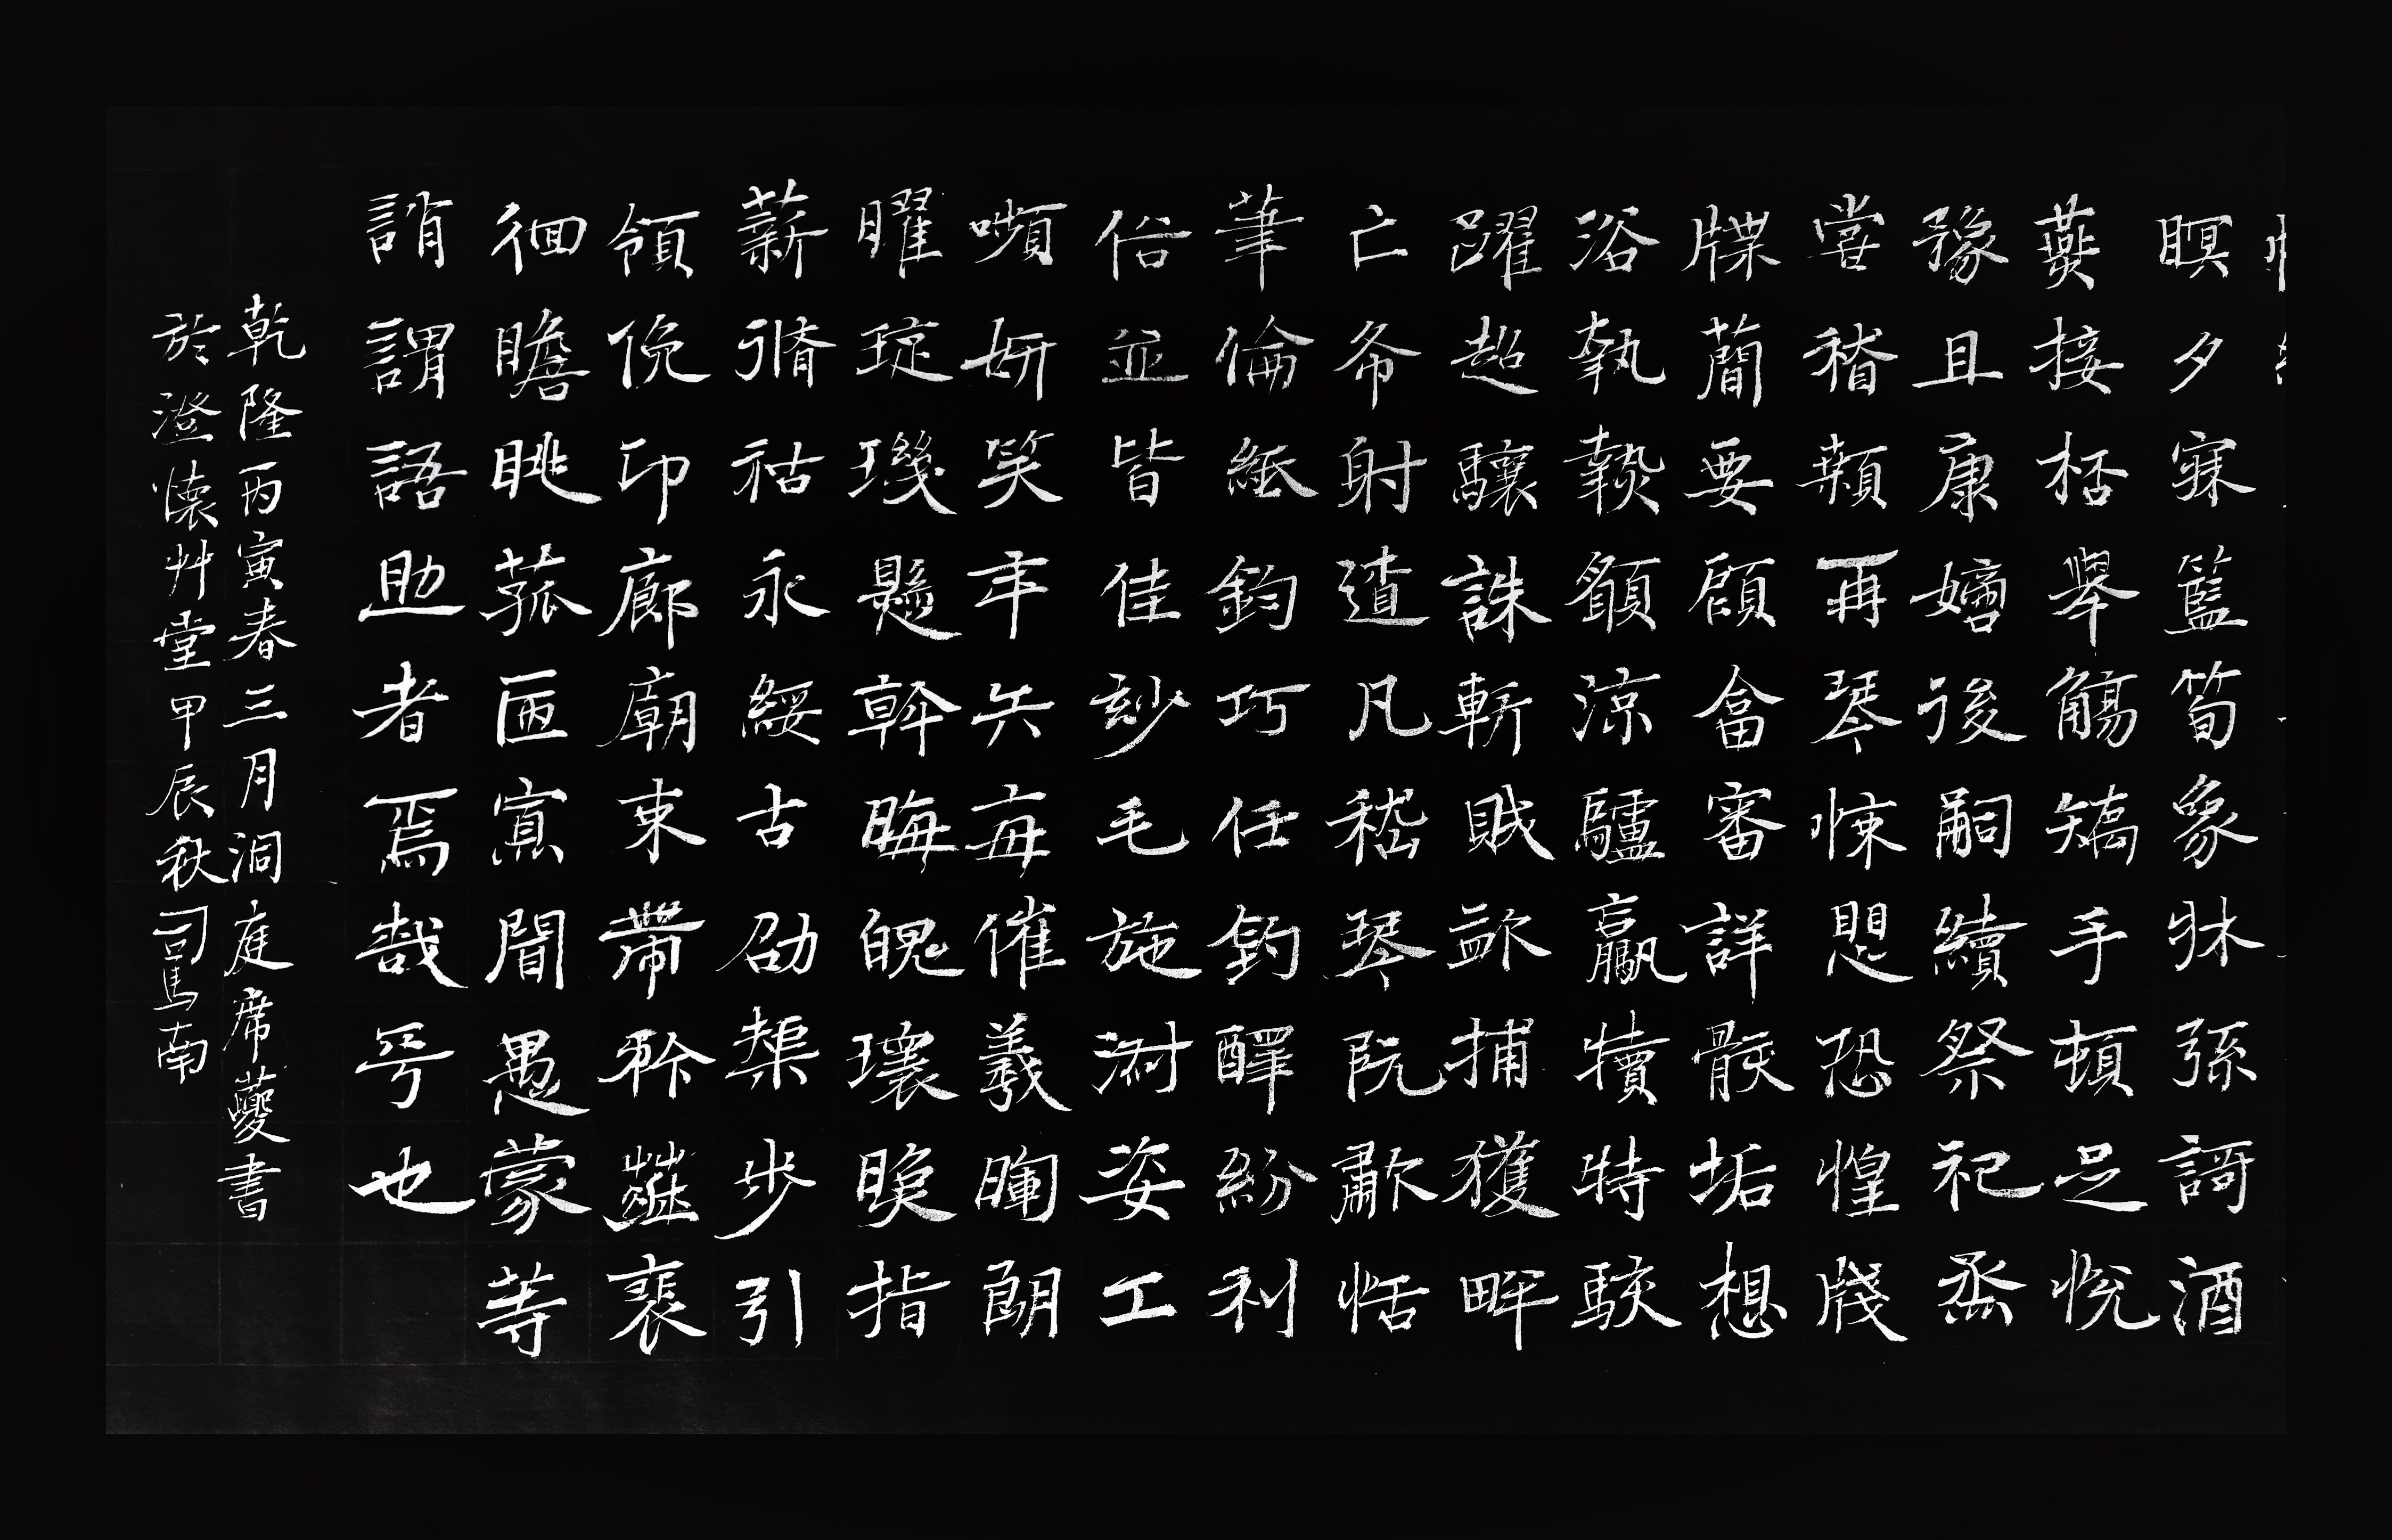 瞑夕寐籃筍象牀弦謌酒
燕接桮舉觴矯手頓足悅
豫且康嫡後嗣續祭祀烝
嘗稽顙再琴悚愳恐惶牋
牒簡要顧畣審詳骸垢想
浴執熱願涼驢驘犢特駭
躍超驤誅斬賊盜捕獲畔
亡布射遼凡嵇琴阮歗恬
筆倫紙鈞巧任釣醳紛利
俗並皆佳玅毛施淑姿工
嚬妍笑年矢每催羲暉朗
曜琁璣懸斡晦魄環指
薪脩祜永綏吉劭榘步引
領俛卬廊廟束帶矜裵
徊瞻眺孤寡聞愚蒙等
誚謂語助者焉哉乎也
乾隆丙寅春三月洞庭席夔書
於澄懷艸堂甲辰秋司馬南